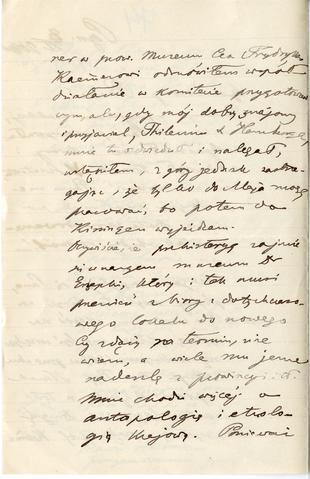 ner w prow. Muzeum Cea Frydryka
odmówiłem współ
działanie w komitecie przygotowaw
czym, ale, gdy mój dobry znajomy
i przyjaciel, Thilenius z Hamburga,
mnie to odwiedził i nalegał,
ustąpiłem, z góry jednak zastrze
gając, że tylko do Maja mogę
pracować, bo potem do
Kissingen wyjeżdżam.
Oczywiście, że prehistoryą zajmie
się w naszym muzeum Dr
Erzepki, który i tak musi
przenieść zbiory z dotychczaso
wego lokalu do nowego
Czy zdąży na termin, nie
wiem, a wiele mu jeszcze
nadeszlą z prowincyi it.
Mnie chodzi więcej o
antropologię i etnolo-
gię krajową. Ponieważ